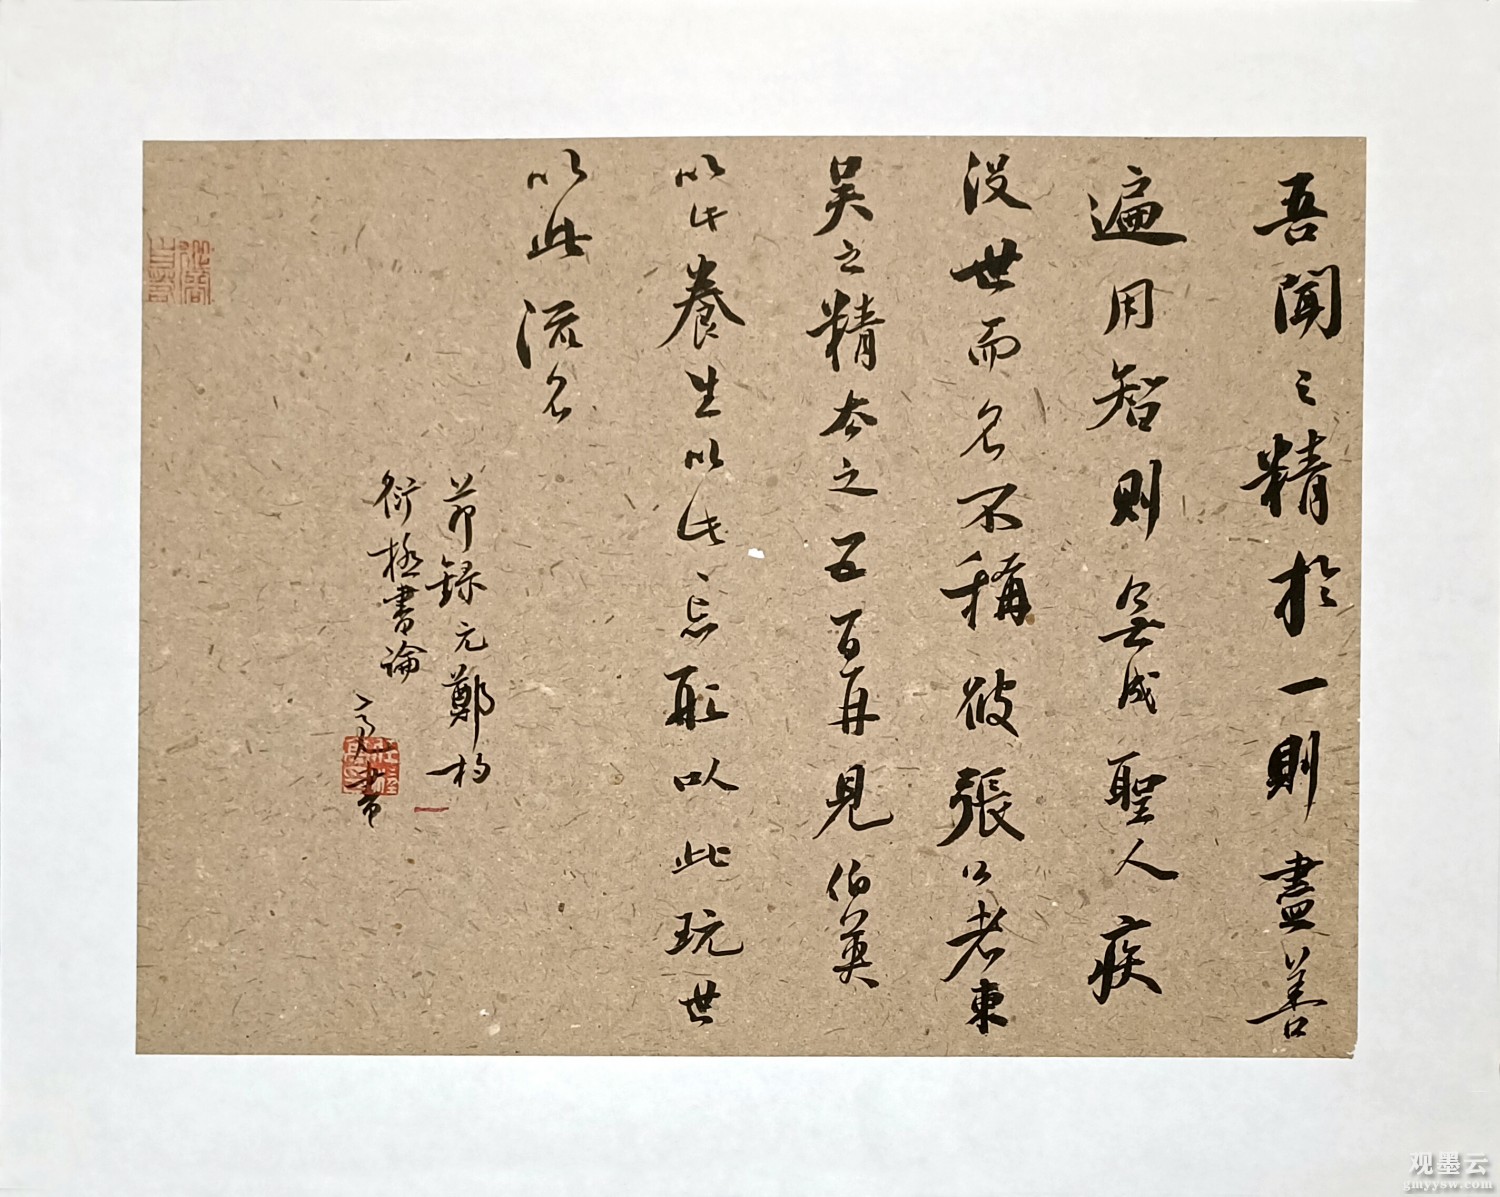 吾聞之精於一則盡善
遍用智則無成聖人疾
沒世而名不稱彼張公者東
吳之精本之五百再見伯英
以此養生以此忘形以此玩世
以此流名
節錄元鄭杓
衍極書論
书
观墨云
gmyysw.com